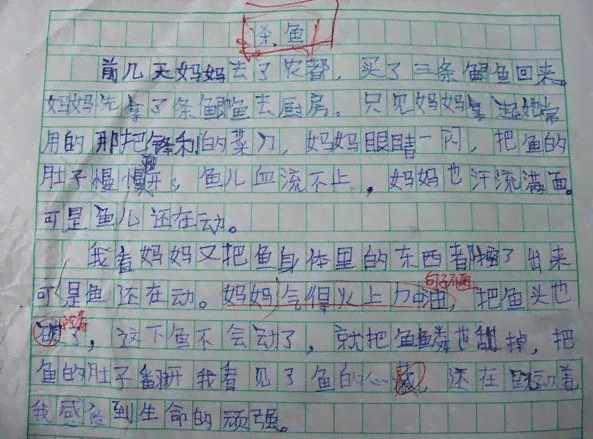 杀鱼
前几天妈妈去了农都，买了三条鲫鱼回来。
妈妈先拿了条鲫鱼去厨房。只见妈妈拿起她常
用的那把锋利的菜刀，妈妈眼睛一闪，把鱼的
肚子慢慢割开。鱼儿血流不止，妈妈也汗流满面。
可是鱼儿还在动。
我看妈妈又把鱼身体里的东西都掏了出来
可是鱼还在动。妈妈气得火上加油，把鱼头也
句子不通
了，这下鱼不会动了，就把鱼鳞也刮掉，把
鱼的肚子翻开我看见了鱼的心脏，还在跳动着
我感受到生命的顽强。